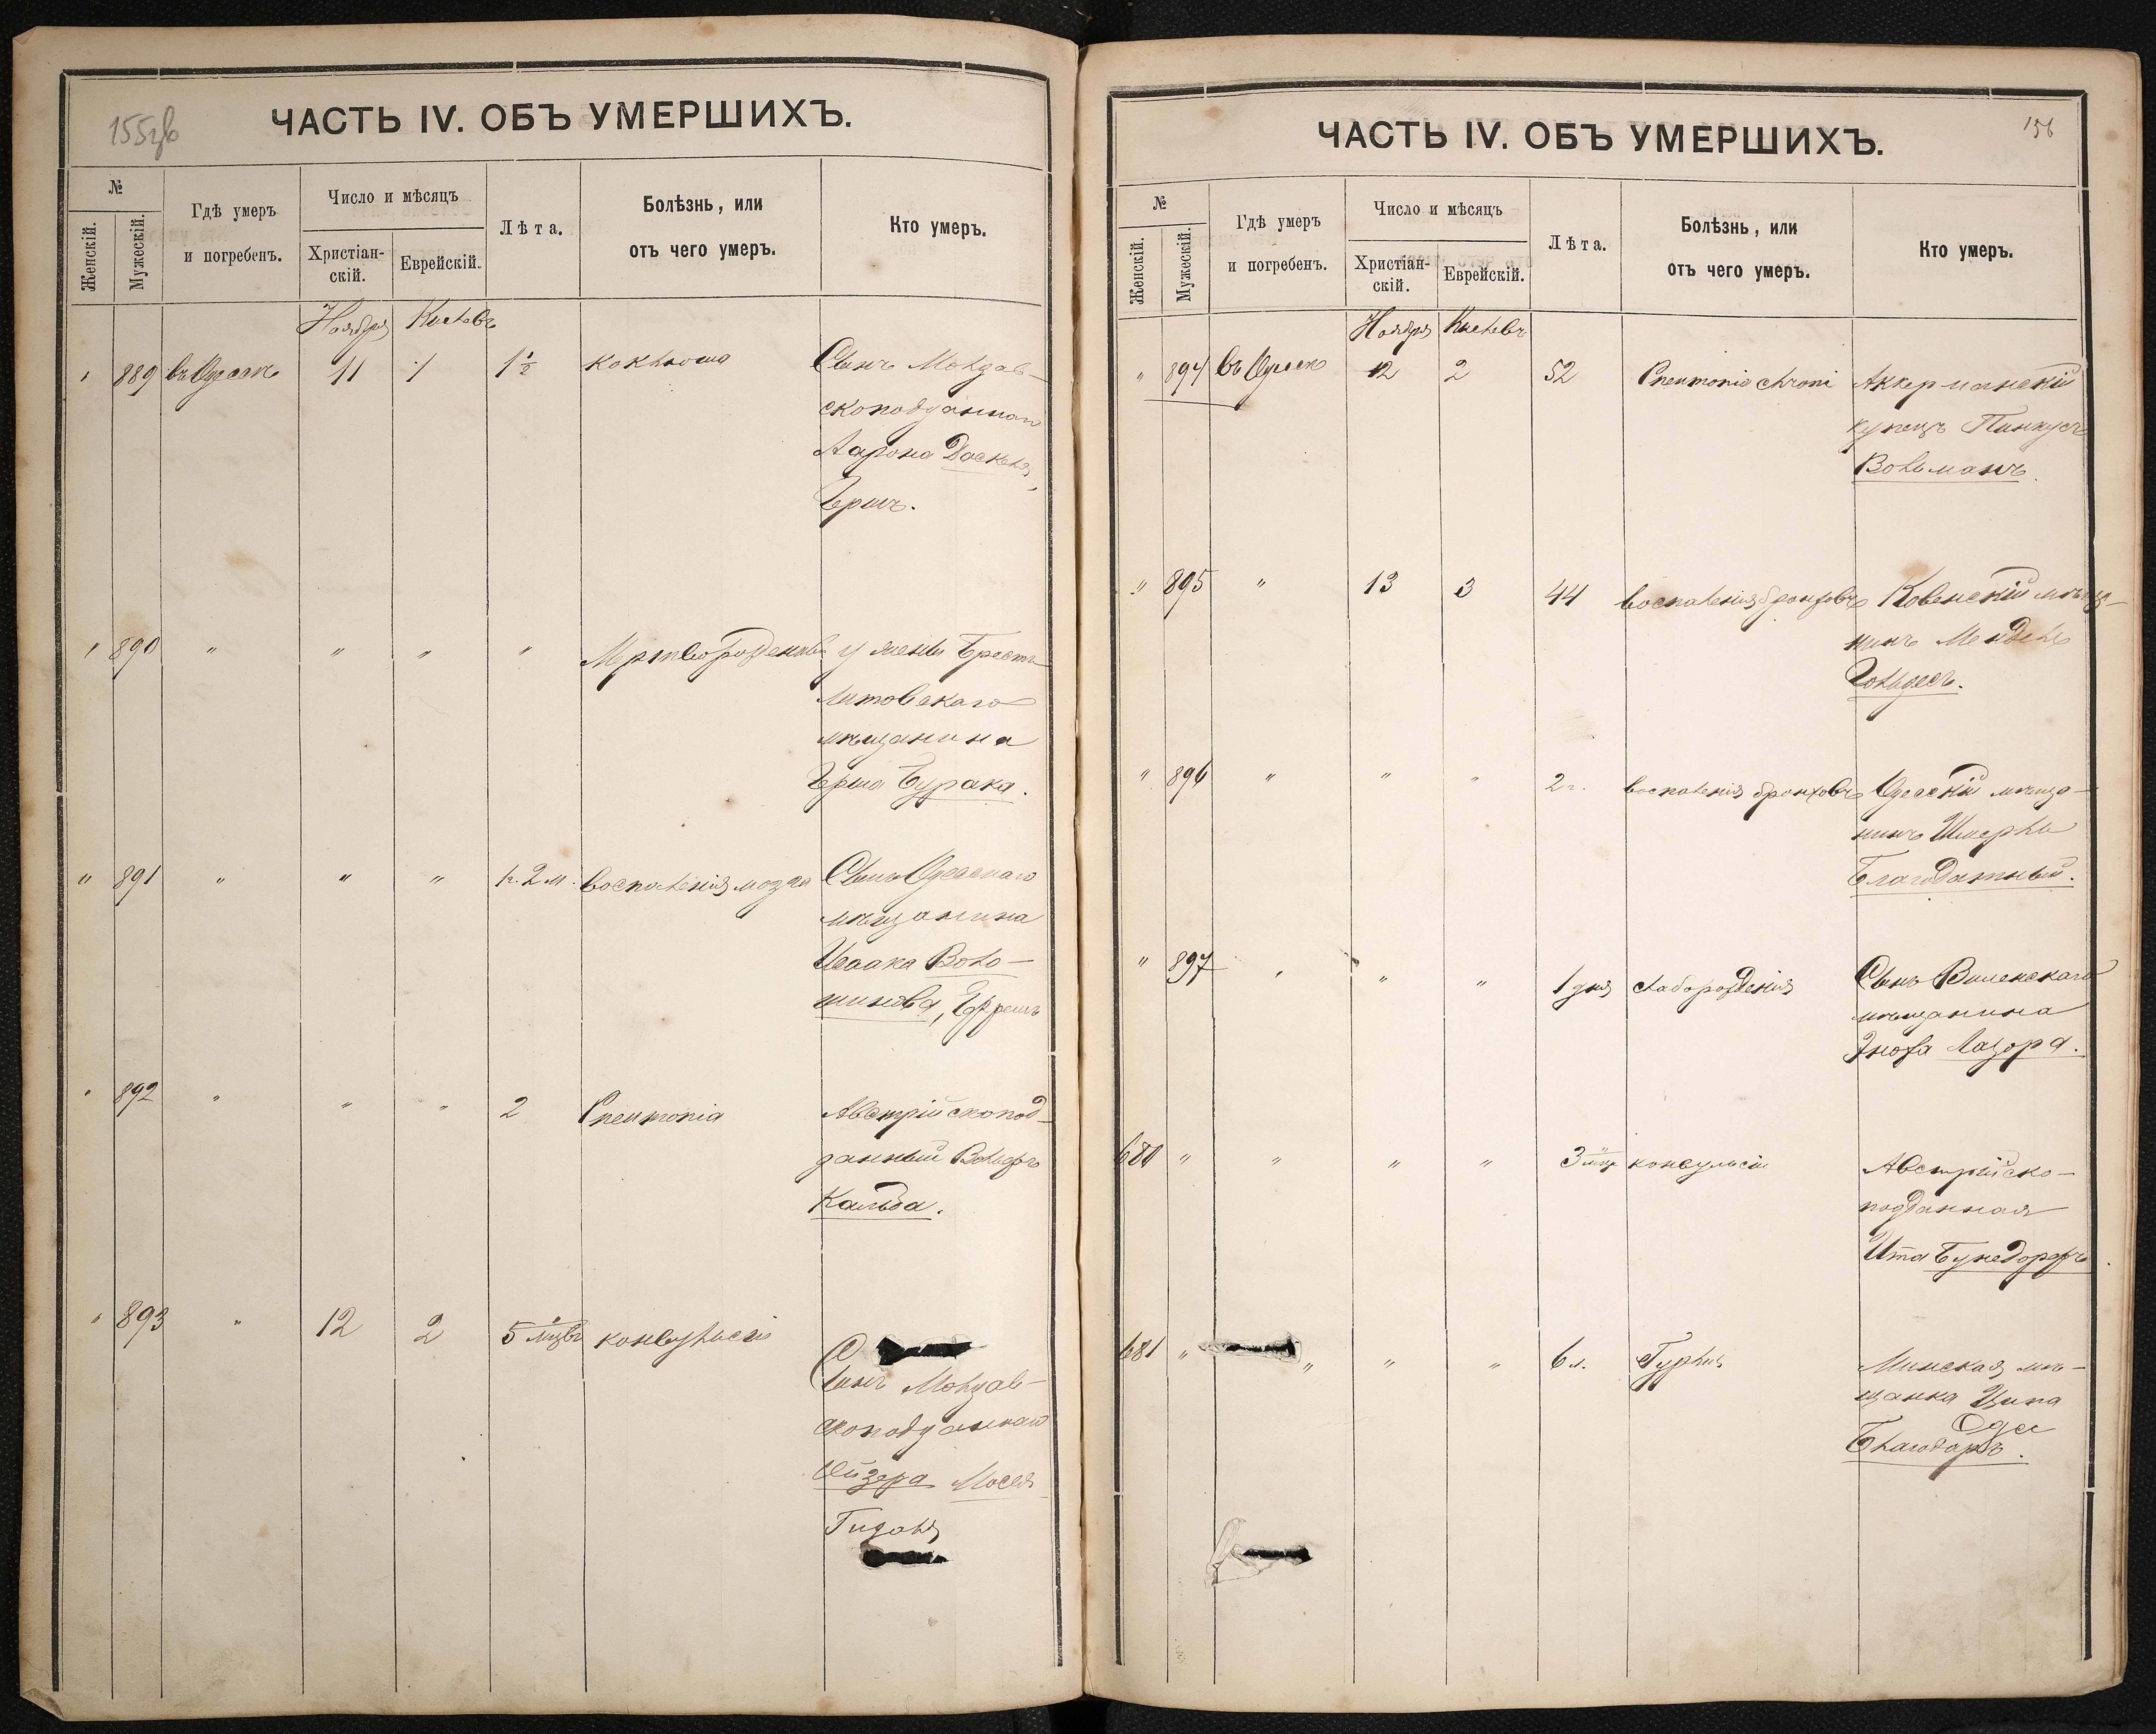 155об
ЧАСТЬ IV. ОБЪ УМЕРШИХЪ.
№
Женскій.
Мужескій.
Гдѣ умеръ
и погребенъ.
Число и мѣсяцъ
Христіан-
скій.
Еврейскій.
Лѣта.
Болѣзнь, или
отъ чего умеръ.
Кто умеръ.
Ноября Кислевъ
" 889 въ Одессѣ 11 1 1½ коклюша Сынъ Молдав-
скоподданнаго
Аарона Даскеля,
Герш.
" 890 " " " " Мертворожденный у жены Брестъ
Литовскаго
мѣщанина
Герша Бурака.
" 891 " " " 1г. 2 м. воспаленія мозга Сынъ Одесскаго
мѣщанина
Исаака Воло-
шинова, Ефремъ
" 892 " " " 2 Pneumonia Австрійскопод-
данный Вольфъ
Кальба.
" 893 " 12 2 5 мцвъ конвульсіи
Сынъ Молдав-
скоподданнаго
Ойзера Мосея
Гидаля
156
ЧАСТЬ IV. ОБЪ УМЕРШИХЪ.
№
Женскій.
Мужескій.
Гдѣ умеръ
и погребенъ.
Число и мѣсяцъ
Христіан-
скій.
Еврейскій.
Лѣта.
Болѣзнь, или
отъ чего умеръ.
Кто умеръ.
Ноября Кислевъ
" 894 въ Одессѣ 12 2 52 Pneumonia chroni Аккерманскій
купецъ Пинкусъ
Вольманъ.
" 895 " 13 3 44 воспаленія бронховъ Ковенскій мѣща-
нинъ Мендель
Гольдесъ.
" 896 " " " 2 г. воспаленія бронховъ Одесскій мѣща-
нинъ Шмерль
Благодатный.
" 897 " " " 1 дня слаборожденія Сынъ Виленскаго
мѣщанина
Эноха Лацора.
680 " " " " 3 мцъ конвульсіи Австрійско-
подданная
Ита Бунедорфъ
681 " " " " 6 л. Минская мѣ-
щанка Ципа
Благодаръ.